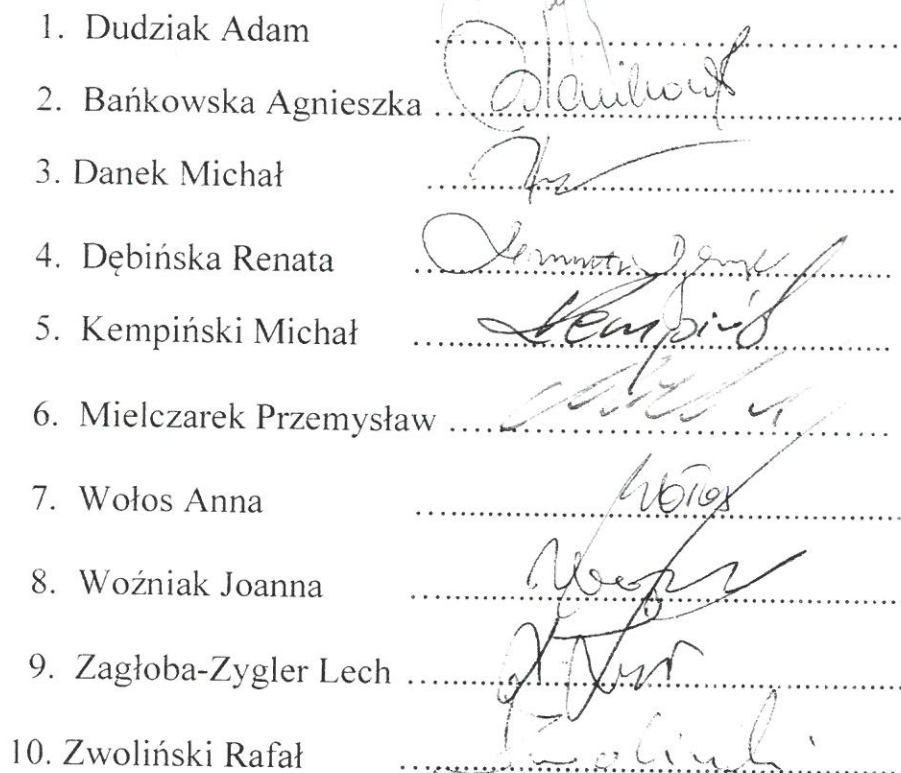 1. Dudziak Adam ........................................
2. Bańkowska Agnieszka ........................................
3. Danek Michał ........................................
4. Dębińska Renata ........................................
5. Kempiński Michał ........................................
6. Mielczarek Przemysław ........................................
7. Wołos Anna ........................................ Wołos
8. Woźniak Joanna ........................................
9. Zagłoba-Zygler Lech ........................................
10. Zwoliński Rafał ........................................